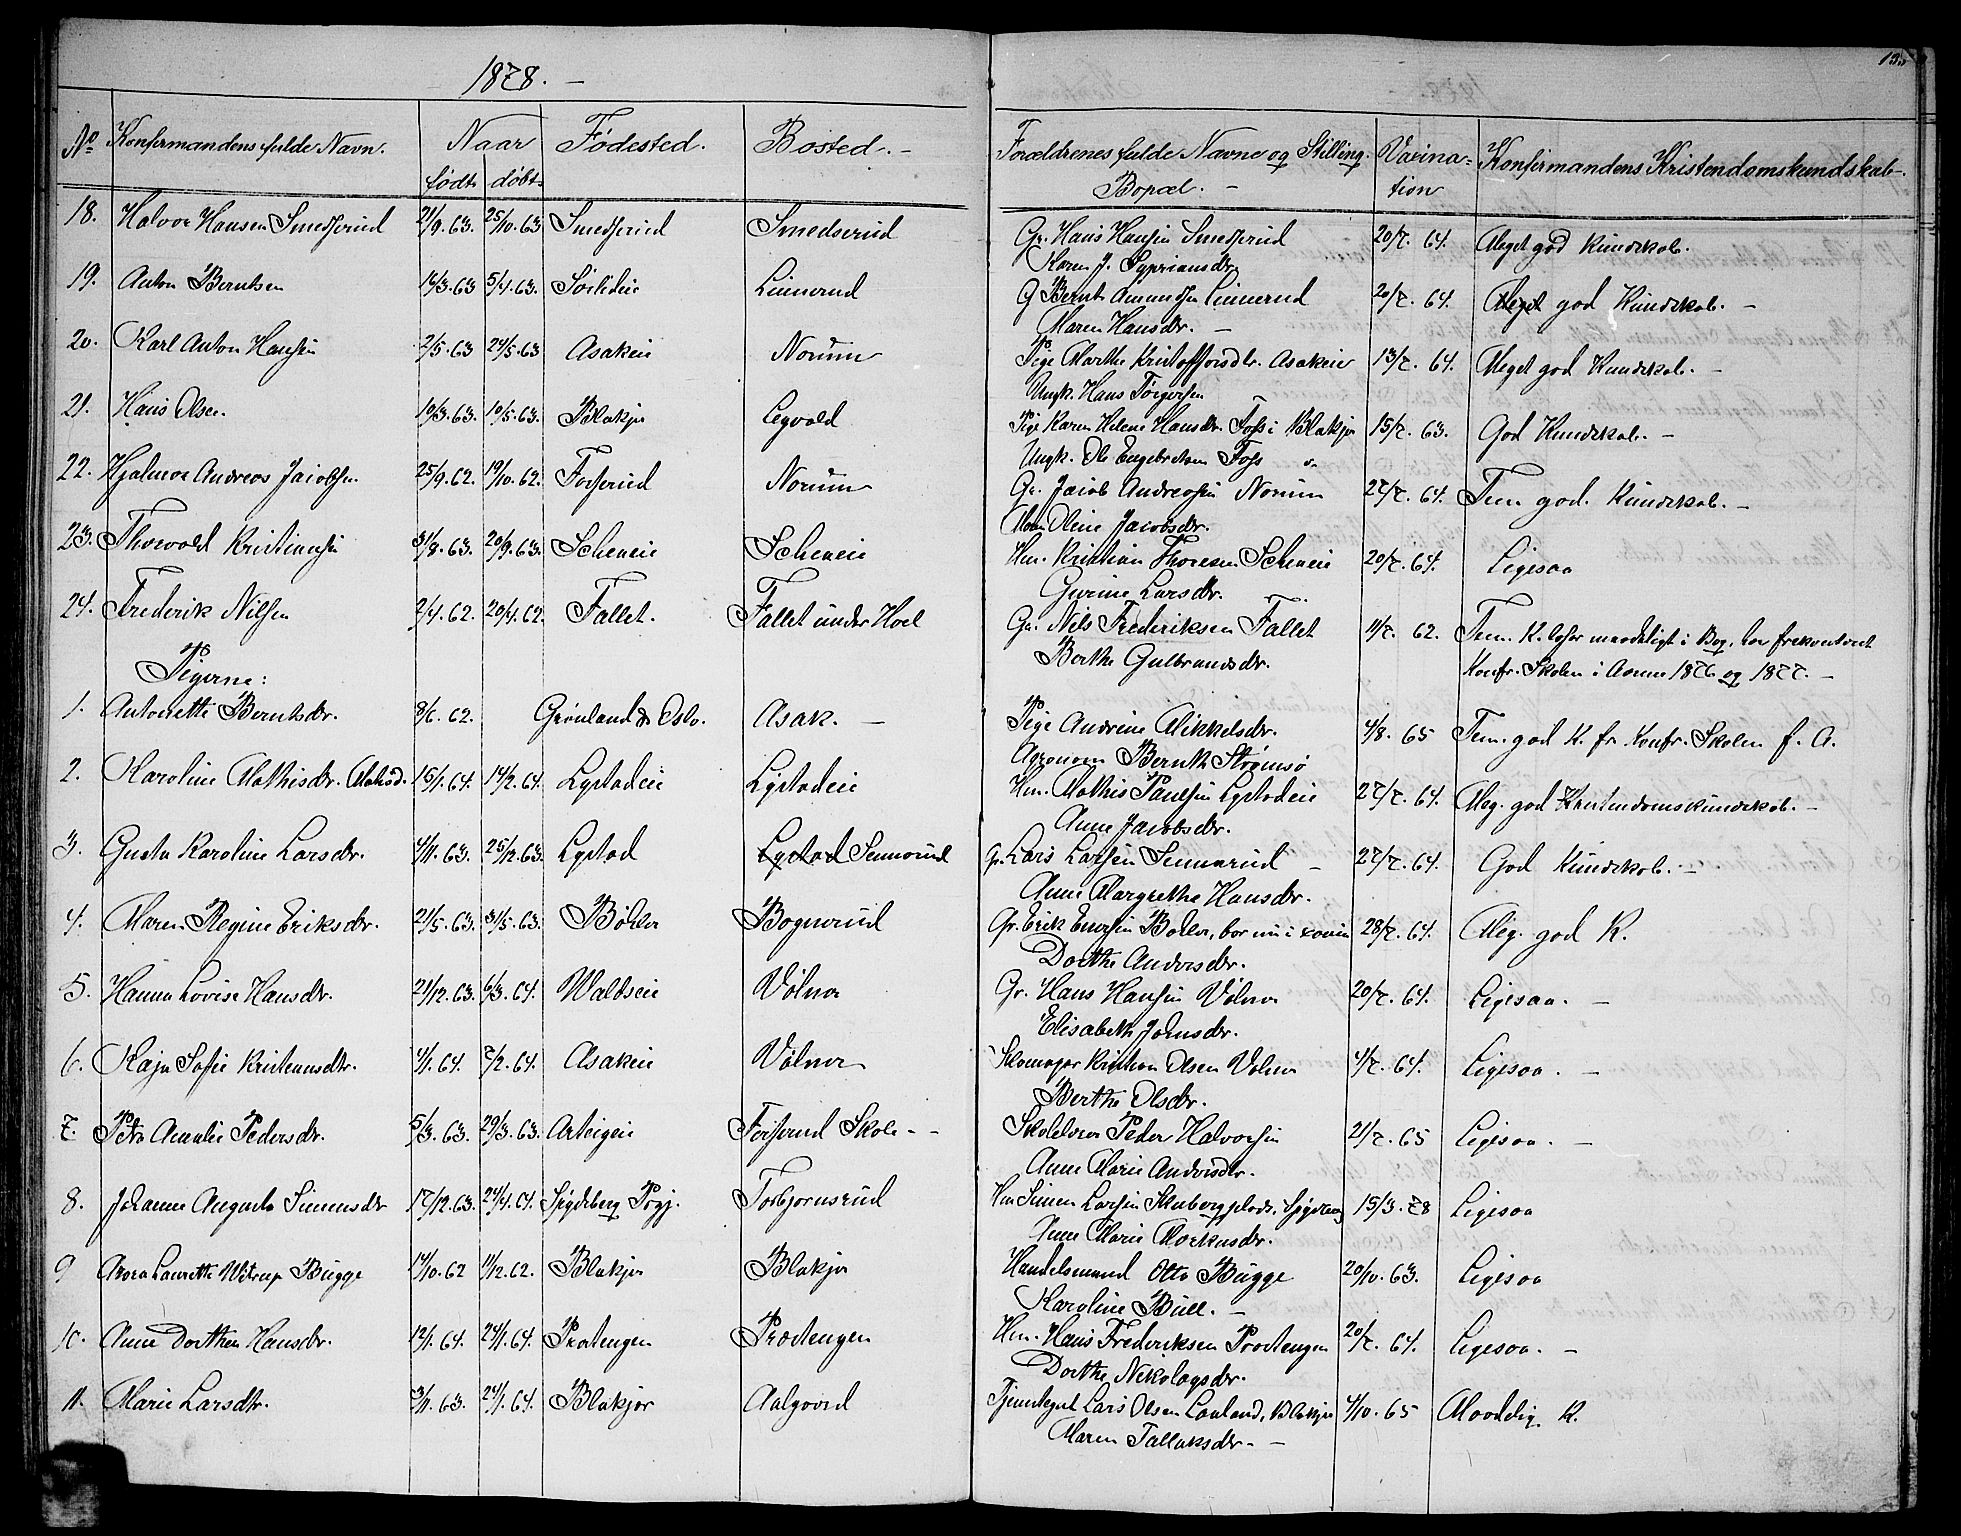 1878. –
135
No Konfirmandens fulde Navn. Naar Fødested. Bosted. – Forældrenes fulde Navne og Stilling. Vaxina= Konfirmandens Kristendomskundskab –
født døbt Bopæl. – tion
18. Halvor Hansen Smedserud 21/9. 63. 25/10. 63 Smedserud Smedserud Gr. Hans Hansen Smedserud 20/7. 64. Meget god Kundskab.
Karen J. Sypriansdr.
19. Anton Berntsen 16/3. 63 5/4. 63. Sørlieie Linnerud G Bernt Amundsen Linnerud 20/7. 64. Meget god Kundskab. –
Maren Hansdr. –
20. Karl Anton Hansen 2/5. 63 24/5. 63 Asakeie Norum Pige Marthe Kristoffersdtr. Asakeie 13/7. 64. Meget god Kundskab. –
Ungk. Hans Torgersen
21. Hans Olsen. 10/3. 63. 10/5. 63. Blakjer Legvold Pige Karen Helene Hansdr. Foss i Blakjer 15/7. 63. God Kundskab. –
Ungk. Ole Engebretsen Foss
22. Hjalmar Andreas Jacobsen 25/9. 62. 19/10. 62. Fosserud Norum Gr. Jacob Andreasen Norum 27/7. 64. Tem. god. Kundskab. –
Maren Oline Jacobsdr.
23. Thorvald Kristiansen 31/8. 63. 20/9. 63. Scheneie Scheneie Hm. Kristian Thoresen Scheneie 20/7. 64. Ligesaa
Gurine Larsdr.
24. Frederik Nilsen 2/4. 62. 20/4. 62. Fallet. Fallet under Hoel Gr. Nils Frederiksen Fallet 11/7. 62. Tem. K. læser maadeligt i Bog, har frekventeret
Berthe Gulbrandsdr. Konfr. Skolen i Aarene 1876 og 1877. –
Pigerne:
1. Antonette Berntsdr. 8/6. 62. Grønland & Oslo. Asak. – Pige Andrine Mikkelsdr. 4/8. 65 Tem. god K. fr. Konfr. Skolen f. A.
Agronom Bernth Strømsø
2. Karoline Mathisdr. 15/1. 64. 14/2. 64. Lystadeie Lystadeie Hm. Mathis Paulsen Lystadeie 27/7. 64. Meg. god Kristendomskundskab. –
Anne Jacobsdr.
3. Gusta Karoline Larsdr. 4/11. 63. 25/12. 63. Lystad Lystad Sennerud Gr. Lars Larsen Sennerud – 27/7. 64. God Kundskab. –
Anne Margrethe Hansdr.
4. Maren Regine Eriksdr. 21/5. 63. 31/5. 63. Bøhler Bognerud Gr. Erik Enersen Bøhler, bor nu i 28/7. 64. Meg. god K.
Dorthe Andersdr.
5. Hanna Lovise Hansdr. 21/12. 63. 6/3. 64. Waldseie Vølner Gr. Hans Hansen Vølner 20/7. 64. Ligesaa. –
Elisabeth Johnsdr.
6. Kaja Sofie Kristiansdtr. 4/1. 64. 7/2. 64. Asakeie Vølner Skomager Kristian Olsen Vølner 4/7. 64. Ligesaa. –
Berthe Olsdr.
7. Petra Amalie Pedersdr. 5/3. 63. 29/3. 63. Arteigeie Fosserud Skole – – Skolelærer Peder Halvorsen 21/7. 65 Ligesaa. –
Anne Marie Andersdtr.
8. Johanne Augusta Simensdr 17/12. 63. 24/4. 64. Spydeberg Prgj. Torbjørnsrud Hm Simen Larsen Skubergplads, Spydeberg 15/3. 78 Ligesaa
Anne Marie Markusdr.
9 Laurette Wetrup Bugge 14/10. 62 11/12. 62. Blakjer Blakjer Handelsmand Otto Bugge 20/10. 63. Ligesaa
Karoline Bull. –
10. Anne Dorthea Hansdr. 12/1. 64. 24/1. 64. Prætengen Prætengen Hm. Hans Frederiksen Prætengen 20/7. 64. Ligesaa. –
Dorthe Nikolaysdr.
11. Marie Larsdtr. 3/11. 63. 24/1. 64. Blakjer Aalgaard Tjenestegut Lars Olsen Lauland, Blakjer 4/10. 65 Maadelig K.
Maren Tallaksdr. –